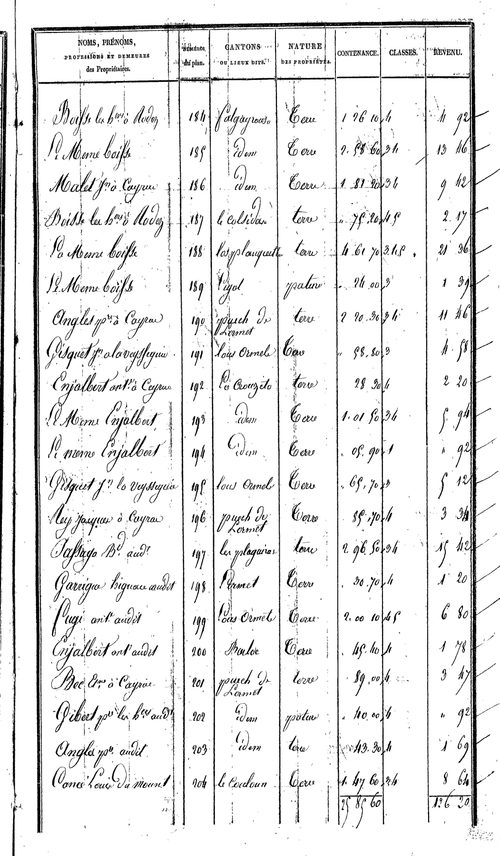 NOMS, PRÉNOMS, PROFESSIONS ET DEMEURES des Propriétaires. NUMÉROS du plan. CANTONS OU LIEUX DITS. NATURE DES PROPRIÉTÉS. CONTENANCE. CLASSES. REVENU.
Boisse les hers à Rodez 184 falgayrose Terre 1 26 10 4 4 92
Le Meme boisse 185 idem Terre 2. 58 60 34 13 46
Malet Jn à Cayrac 186 idem Terre 1. 81 20 34 9 42
Boisse les hers à Rodez 187 le colsidas terre 75 20 45 2 17
Le Meme boisse 188 las planquett terre 4 61 70 345 21 36
Le Meme boisse 189 patur 24 00 3 1 39
Angles pre à Cayrac 190 puech de Lermet terre 2 20 30 34 11 46
Gisquet Jn a la veysseyrie 191 lous Ormels Terre 58 80 3 4. 58
Enjalbert ant. à Cayrac 192 La Crouzete terre 28 30 4 2 20
Le Meme Enjalbert 193 idem Terre 1. 01 50 34 5 94
Le meme Enjalbert 194 idem Terre 05. 90 1 " 92
Gisquet Jn la veysseyrie 195 lous Ormels Terre 65. 70 3 5 12
Rey Jacques à Cayrac 196 puech de Lermet Terre 55. 70 4 3 34
aud. 197 les plagaires terre 2 96 50 34 15 42
Garrigue audit 198 Lermet Terre 30. 70 4 1 20
ant. audit 199 Lous Ormels Terre 2. 00 10 45 6 80
Enjalbert ant audit 200 Terre 45. 40 4 1 78
à Cayrac 201 puech de Lermet terre 89. 00 4 3 47
Gibert pre les hers aud. 202 idem patur 40. 00 4 " 92
Angles pre audit 203 idem terre 43. 30 4 1 69
Louis du mounet 204 le Couloun Terre 1. 47 60 34 8 64
25 85 60 126 20